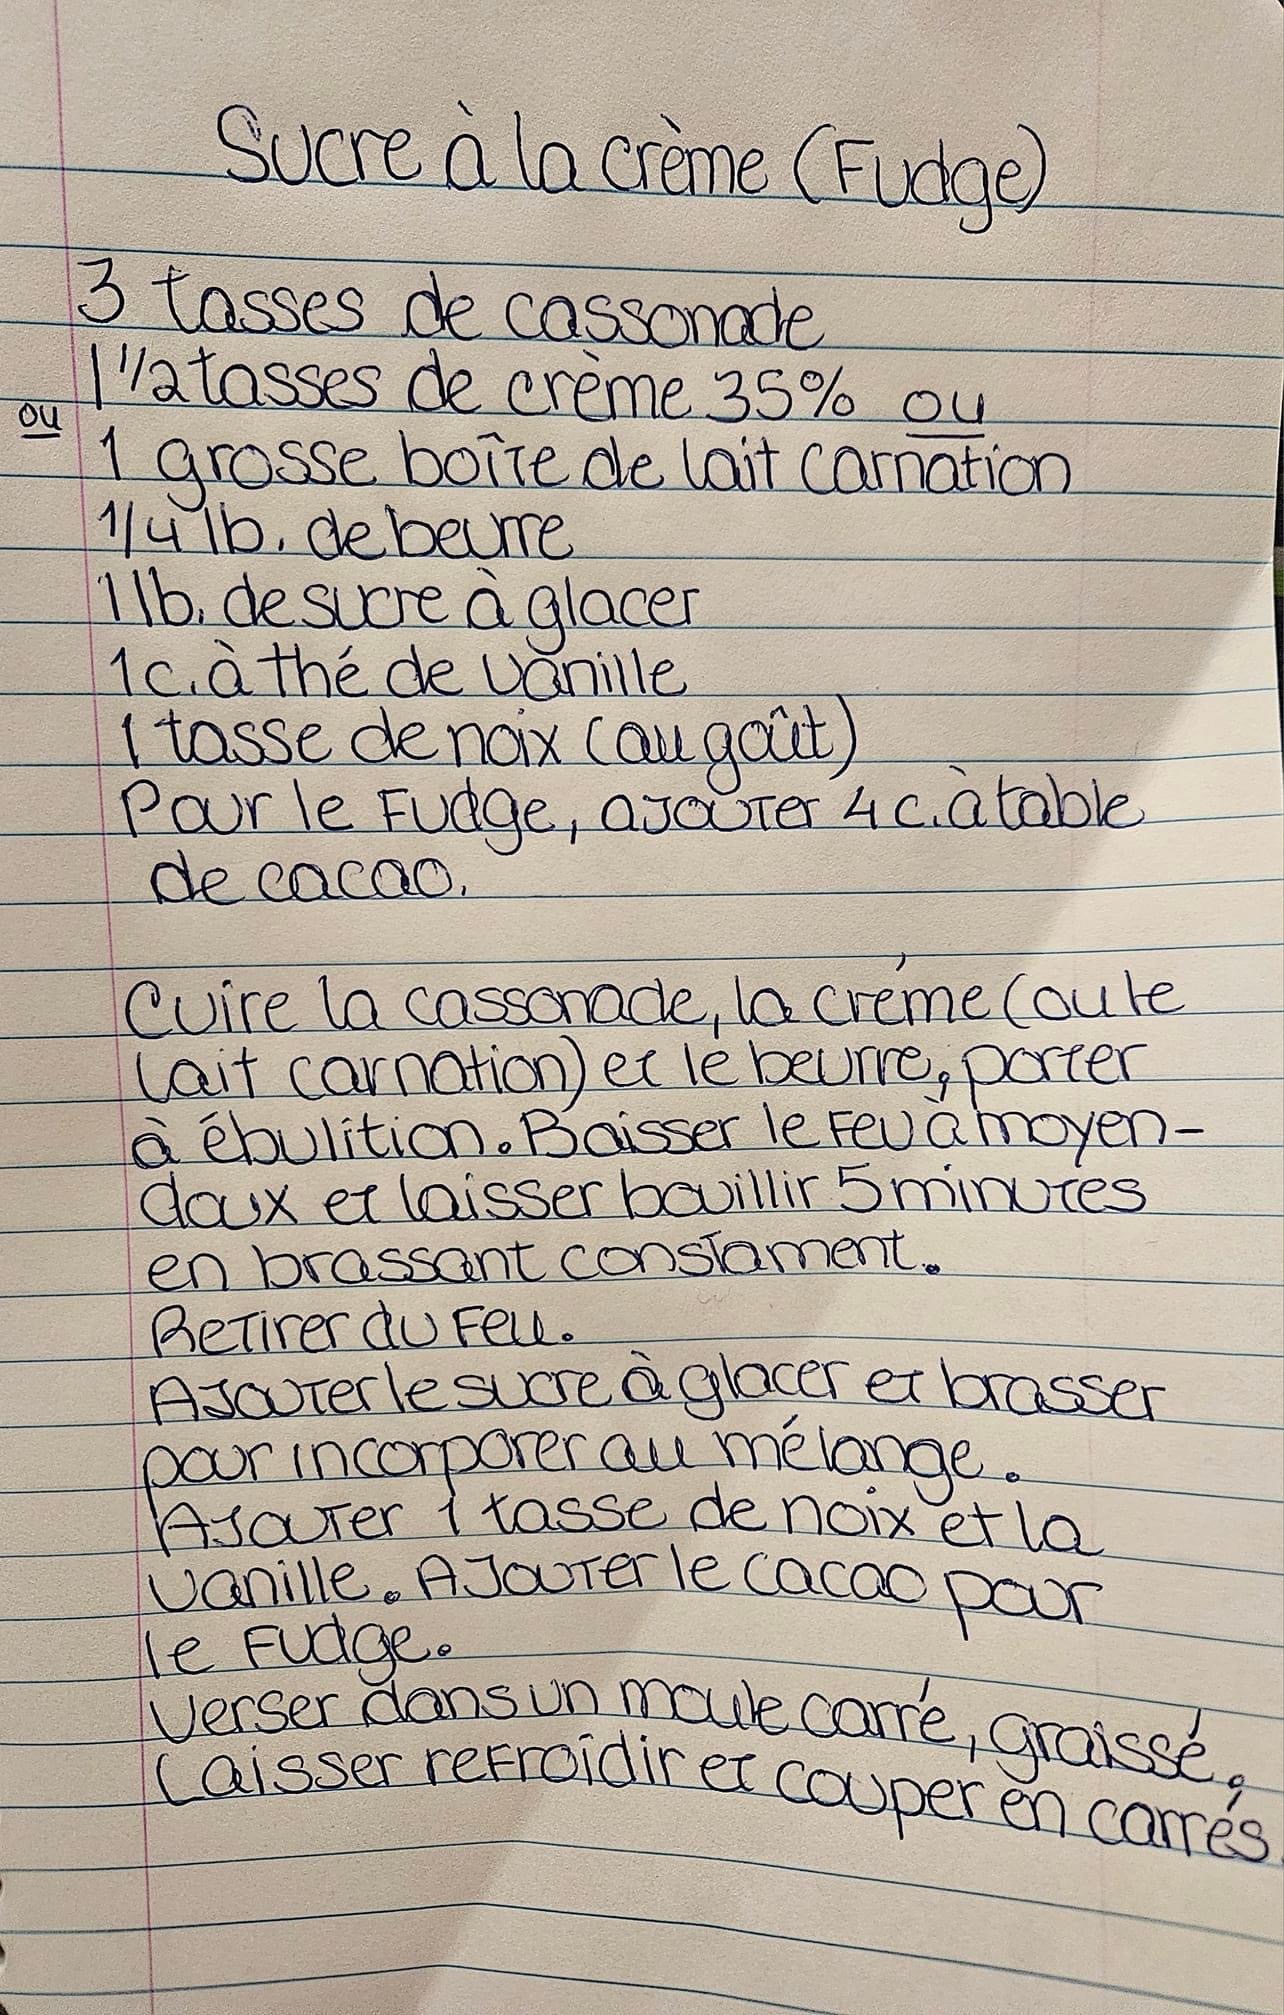 Sucre à la crème (Fudge)
3 tasses de cassonade
1 1/2 tasses de crème 35% ou
ou
1 grosse boîte de lait carnation
1/4 lb. de beurre
1 lb. de sucre à glacer
1 c. à thé de vanille
1 tasse de noix (au goût)
Pour le Fudge, ajouter 4 c. à table
de cacao.
Cuire la cassonade, la créme (ou le
lait carnation) et le beurre, porter
à ébulition. Baisser le feu à moyen-
doux et laisser bouillir 5 minutes
en brassant constament.
Retirer du feu.
Ajouter le sucre à glacer et brasser
pour incorporer au mélange.
Ajouter 1 tasse de noix et la
vanille. Ajouter le cacao pour
le Fudge.
Verser dans un moule carré, graissé.
Laisser refroidir et couper en carrés.